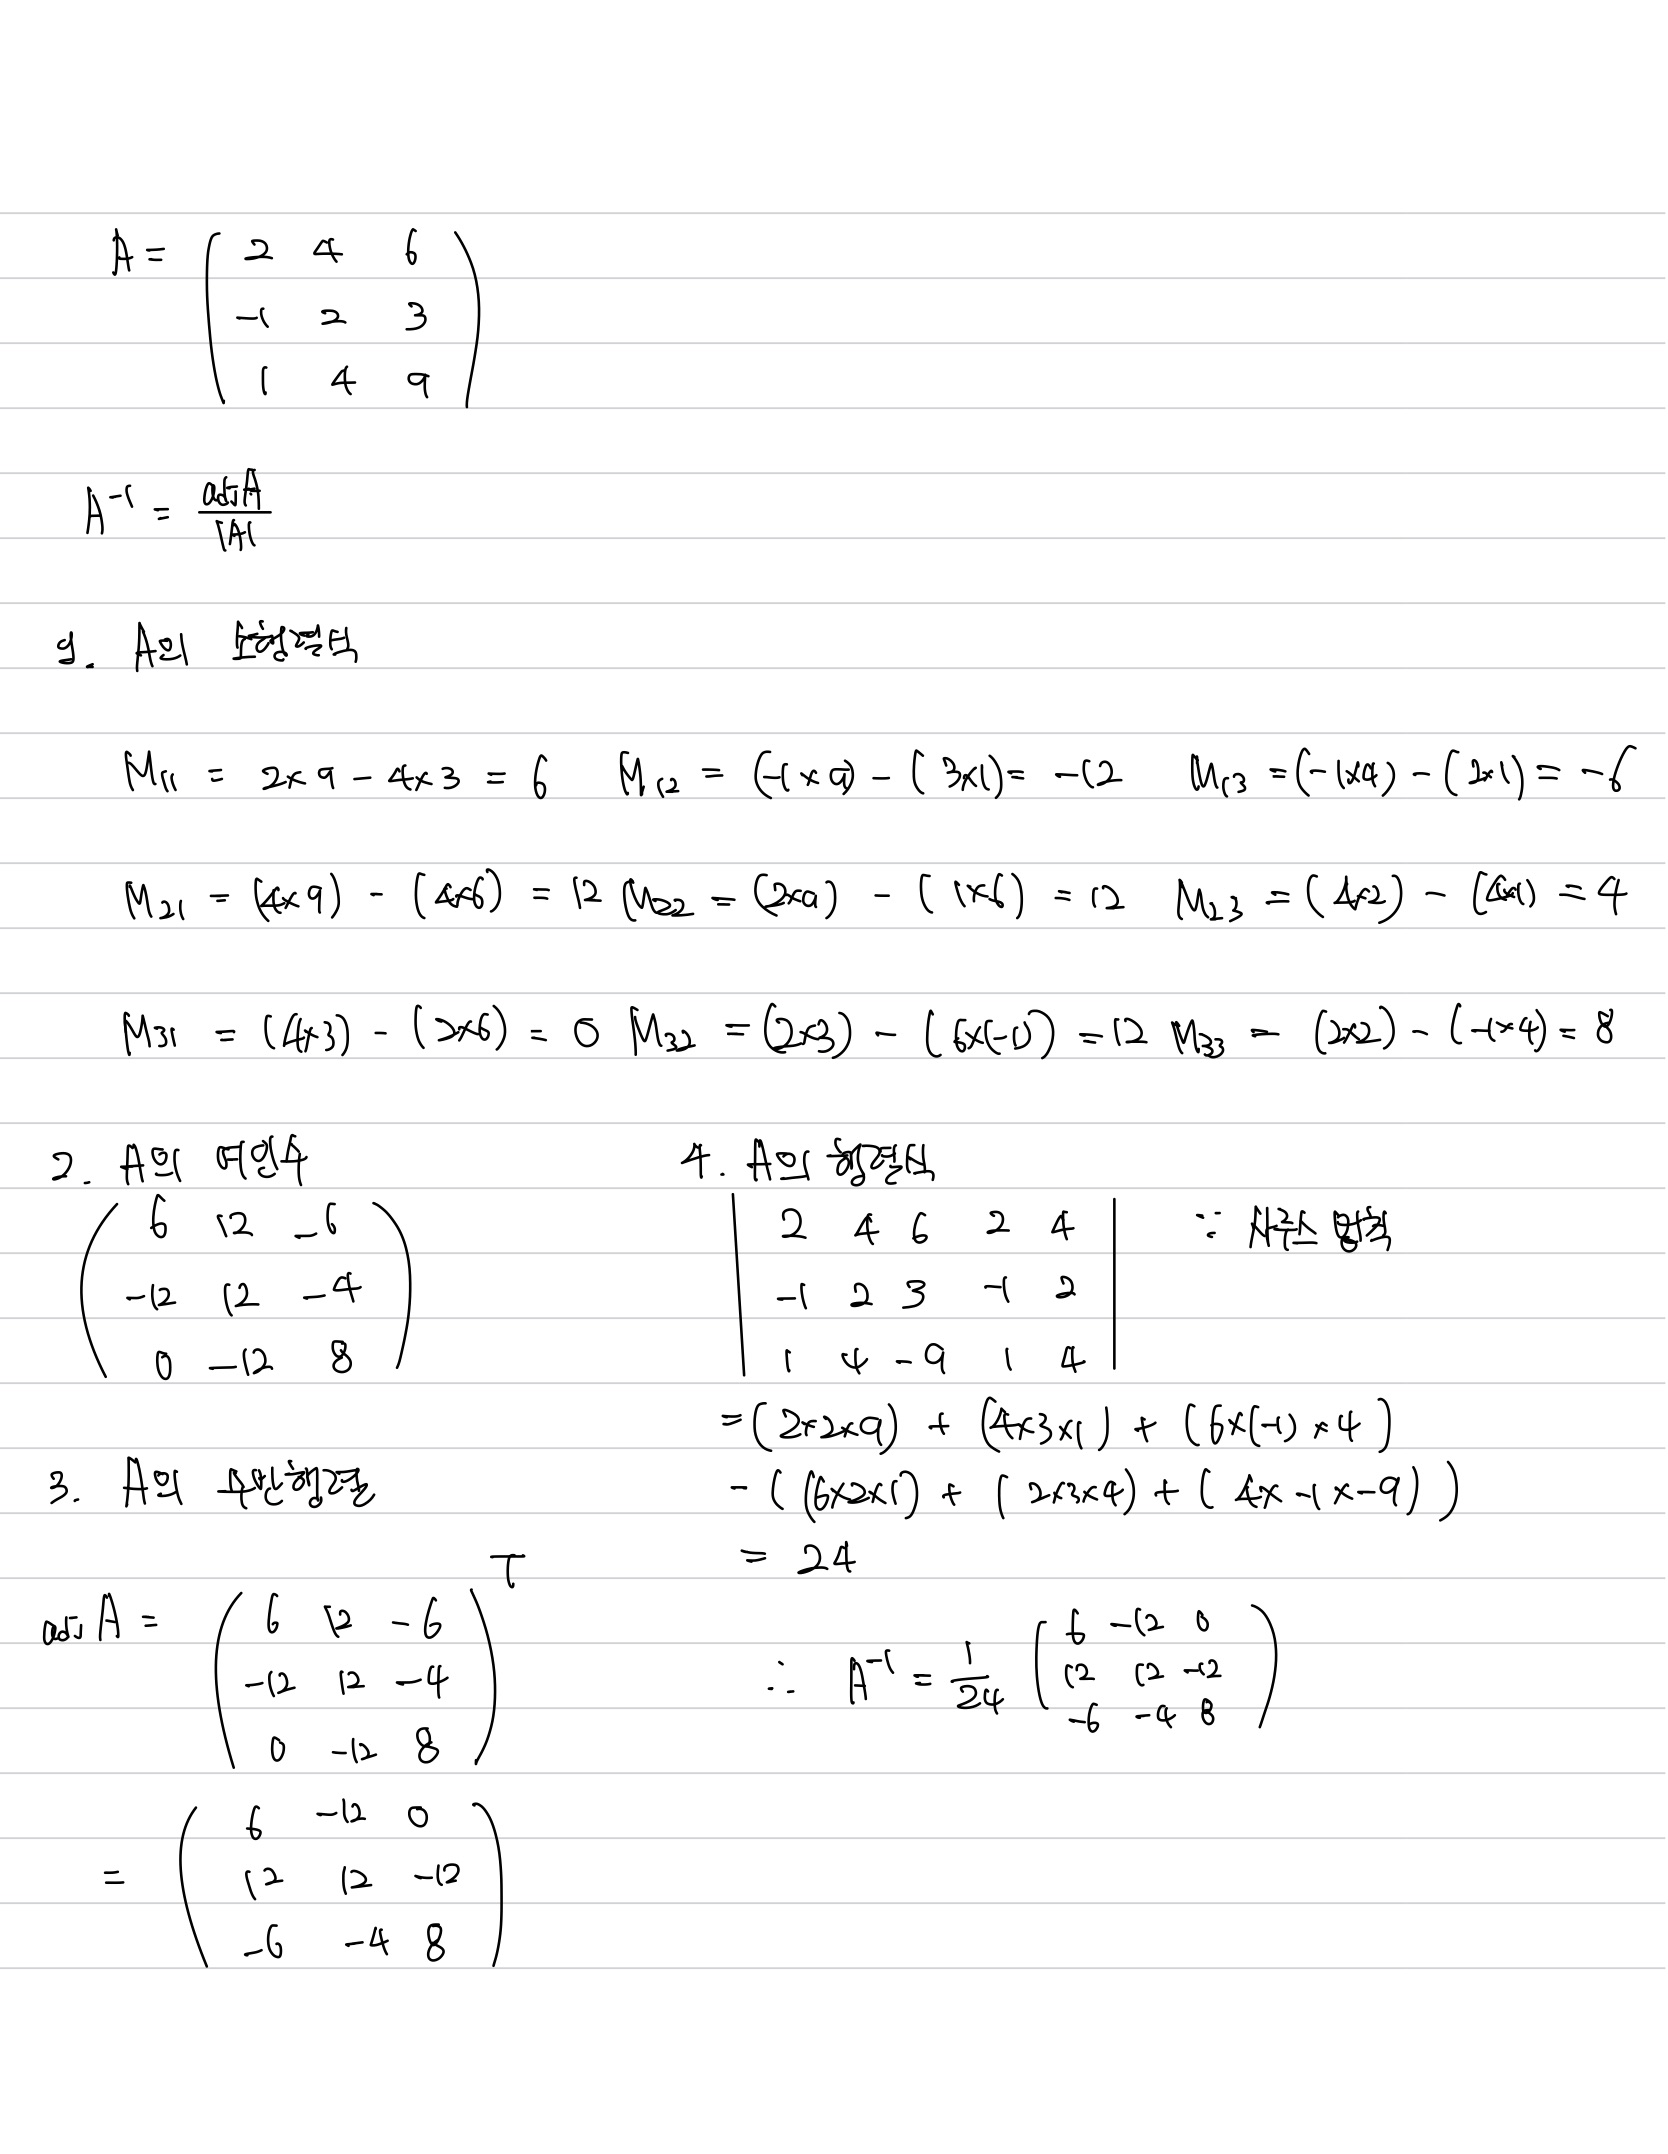 A = ( 2 4 6
-1 2 3
1 4 9 )
A⁻¹ = adjA / |A|
1. A의 소행렬식
M₁₁ = 2×9 - 4×3 = 6 M₁₂ = (-1×9) - (3×1) = -12 M₁₃ = (-1×4) - (2×1) = -6
M₂₁ = (4×9) - (4×6) = 12 M₂₂ = (2×9) - (1×6) = 12 M₂₃ = (4×2) - (4×1) = 4
M₃₁ = (4×3) - (2×6) = 0 M₃₂ = (2×3) - (6×(-1)) = 12 M₃₃ = (2×2) - (-1×4) = 8
2. A의 여인수
( 6 12 -6
-12 12 -4
0 -12 8 )
3. A의 수반행렬
adj A = ( 6 12 -6
-12 12 -4
0 -12 8 )ᵀ
= ( 6 -12 0
12 12 -12
-6 -4 8 )
4. A의 행렬식
| 2 4 6 2 4 | ∵ 사루스 법칙
| -1 2 3 -1 2 |
| 1 4 -9 1 4 |
= (2×2×9) + (4×3×1) + (6×(-1)×4)
- ((6×2×1) + (2×3×4) + (4×-1×-9))
= 24
∴ A⁻¹ = 1/24 ( 6 -12 0
12 12 -12
-6 -4 8 )